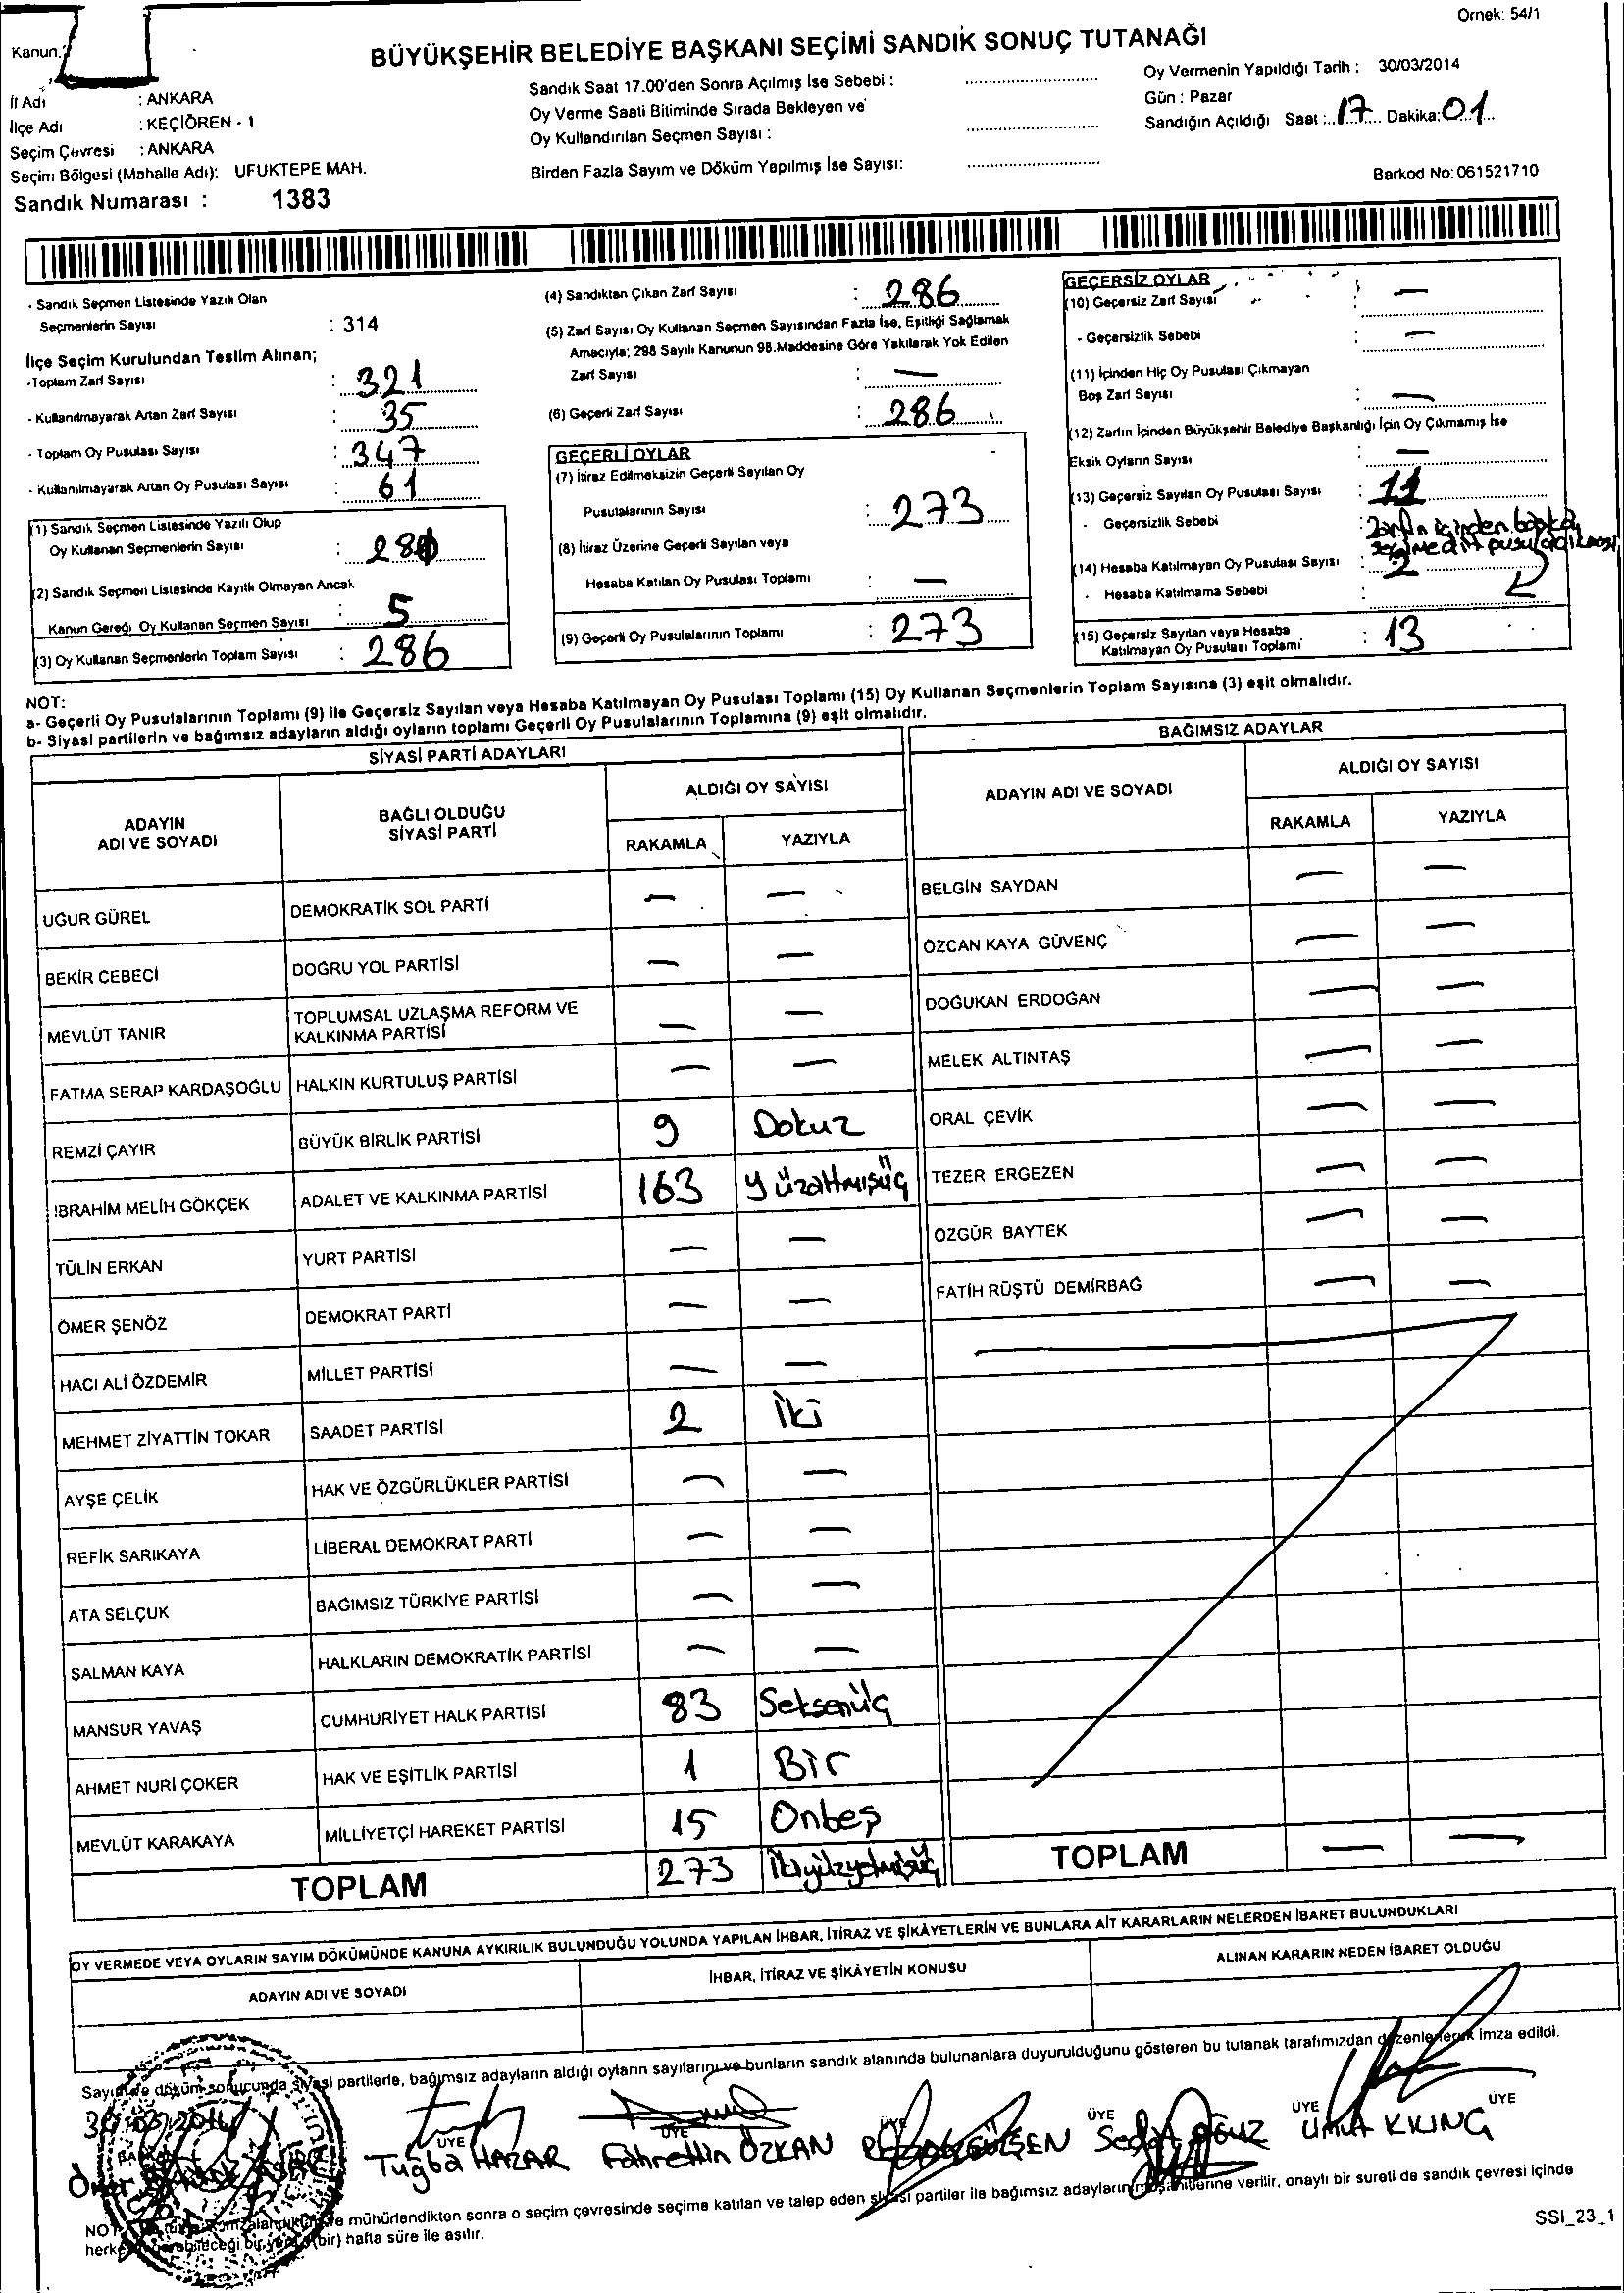 Örnek: 54/1
Kanun.
BÜYÜKŞEHİR BELEDİYE BAŞKANI SEÇİMİ SANDIK SONUÇ TUTANAĞI
İl Adı : ANKARA
İlçe Adı : KEÇİÖREN - 1
Seçim Çevresi : ANKARA
Seçim Bölgesi (Mahalle Adı): UFUKTEPE MAH.
Sandık Numarası : 1383
Sandık Saat 17.00'den Sonra Açılmış İse Sebebi :
Oy Verme Saati Bitiminde Sırada Bekleyen ve
Oy Kullandırılan Seçmen Sayısı :
Birden Fazla Sayım ve Döküm Yapılmış İse Sayısı:
Oy Vermenin Yapıldığı Tarih : 30/03/2014
Gün : Pazar
Sandığın Açıldığı Saat : 17 Dakika: 01
Barkod No: 061521710
- Sandık Seçmen Listesinde Yazılı Olan
Seçmenlerin Sayısı : 314
İlçe Seçim Kurulundan Teslim Alınan;
-Toplam Zarf Sayısı : 321
- Kullanılmayarak Artan Zarf Sayısı : 35
- Toplam Oy Pusulası Sayısı : 347
- Kullanılmayarak Artan Oy Pusulası Sayısı : 61
(1) Sandık Seçmen Listesinde Yazılı Olup
Oy Kullanan Seçmenlerin Sayısı : 281
(2) Sandık Seçmen Listesinde Kayıtlı Olmayan Ancak
Kanun Gereği Oy Kullanan Seçmen Sayısı : 5
(3) Oy Kullanan Seçmenlerin Toplam Sayısı : 286
(4) Sandıktan Çıkan Zarf Sayısı : 286
(5) Zarf Sayısı Oy Kullanan Seçmen Sayısından Fazla İse, Eşitliği Sağlamak
Amacıyla; 298 Sayılı Kanunun 98.Maddesine Göre Yakılarak Yok Edilen
Zarf Sayısı : —
(6) Geçerli Zarf Sayısı : 286
GEÇERLİ OYLAR
(7) İtiraz Edilmeksizin Geçerli Sayılan Oy
Pusulalarının Sayısı : 273
(8) İtiraz Üzerine Geçerli Sayılan veya
Hesaba Katılan Oy Pusulası Toplamı : —
(9) Geçerli Oy Pusulalarının Toplamı : 273
GEÇERSİZ OYLAR
(10) Geçersiz Zarf Sayısı : —
- Geçersizlik Sebebi : —
(11) İçinden Hiç Oy Pusulası Çıkmayan
Boş Zarf Sayısı : —
(12) Zarfın İçinden Büyükşehir Belediye Başkanlığı İçin Oy Çıkmamış İse
Eksik Oyların Sayısı : —
(13) Geçersiz Sayılan Oy Pusulası Sayısı : 11
- Geçersizlik Sebebi : Zarfın içinden başka
seçime ait pusula çıkması
(14) Hesaba Katılmayan Oy Pusulası Sayısı : 2
- Hesaba Katılmama Sebebi :
(15) Geçersiz Sayılan veya Hesaba
Katılmayan Oy Pusulası Toplamı : 13
NOT:
a- Geçerli Oy Pusulalarının Toplamı (9) ile Geçersiz Sayılan veya Hesaba Katılmayan Oy Pusulası Toplamı (15) Oy Kullanan Seçmenlerin Toplam Sayısına (3) eşit olmalıdır.
b- Siyasi partilerin ve bağımsız adayların aldığı oyların toplamı Geçerli Oy Pusulalarının Toplamına (9) eşit olmalıdır.
SİYASİ PARTİ ADAYLARI
ADAYIN ADI VE SOYADI BAĞLI OLDUĞU SİYASİ PARTİ ALDIĞI OY SAYISI
RAKAMLA YAZIYLA
UĞUR GÜREL DEMOKRATİK SOL PARTİ — —
BEKİR CEBECİ DOĞRU YOL PARTİSİ — —
MEVLÜT TANIR TOPLUMSAL UZLAŞMA REFORM VE KALKINMA PARTİSİ — —
FATMA SERAP KARDAŞOĞLU HALKIN KURTULUŞ PARTİSİ — —
REMZİ ÇAYIR BÜYÜK BİRLİK PARTİSİ 9 Dokuz
İBRAHİM MELİH GÖKÇEK ADALET VE KALKINMA PARTİSİ 163 Yüzatmışüç
TÜLİN ERKAN YURT PARTİSİ — —
ÖMER ŞENÖZ DEMOKRAT PARTİ — —
HACI ALİ ÖZDEMİR MİLLET PARTİSİ — —
MEHMET ZİYATTİN TOKAR SAADET PARTİSİ 2 İki
AYŞE ÇELİK HAK VE ÖZGÜRLÜKLER PARTİSİ — —
REFİK SARIKAYA LİBERAL DEMOKRAT PARTİ — —
ATA SELÇUK BAĞIMSIZ TÜRKİYE PARTİSİ — —
SALMAN KAYA HALKLARIN DEMOKRATİK PARTİSİ — —
MANSUR YAVAŞ CUMHURİYET HALK PARTİSİ 83 Seksenüç
AHMET NURİ ÇOKER HAK VE EŞİTLİK PARTİSİ 1 Bir
MEVLÜT KARAKAYA MİLLİYETÇİ HAREKET PARTİSİ 15 Onbeş
TOPLAM 273 İkiyüzyetmişüç
BAĞIMSIZ ADAYLAR
ADAYIN ADI VE SOYADI ALDIĞI OY SAYISI
RAKAMLA YAZIYLA
BELGİN SAYDAN — —
ÖZCAN KAYA GÜVENÇ — —
DOĞUKAN ERDOĞAN — —
MELEK ALTINTAŞ — —
ORAL ÇEVİK — —
TEZER ERGEZEN — —
ÖZGÜR BAYTEK — —
FATİH RÜŞTÜ DEMİRBAĞ — —
TOPLAM — —
OY VERMEDE VEYA OYLARIN SAYIM DÖKÜMÜNDE KANUNA AYKIRILIK BULUNDUĞU YOLUNDA YAPILAN İHBAR, İTİRAZ VE ŞİKÂYETLERİN VE BUNLARA AİT KARARLARIN NELERDEN İBARET BULUNDUKLARI
ADAYIN ADI VE SOYADI İHBAR, İTİRAZ VE ŞİKÂYETİN KONUSU ALINAN KARARIN NEDEN İBARET OLDUĞU
Sayım ve döküm sonucunda siyasi partilerle, bağımsız adayların aldığı oyların sayılarını ve bunların sandık alanında bulunanlara duyurulduğunu gösteren bu tutanak tarafımızdan düzenlenerek imza edildi.
ÜYE ÜYE ÜYE ÜYE ÜYE ÜYE
Ömer Tuğba HAZAR Fahrettin ÖZKAN GÜLŞEN Sedat OĞUZ Umut KILINÇ
mühürlendikten sonra o seçim çevresinde seçime katılan ve talep eden siyasi partiler ile bağımsız adayların müşahitlerine verilir, onaylı bir sureti de sandık çevresi içinde
herkesin görebileceği bir yere (bir) hafta süre ile asılır.
SSI_23_1